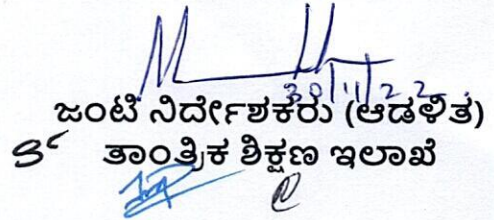 30/11/22.
ಜಂಟಿ ನಿರ್ದೇಶಕರು (ಆಡಳಿತ)
ತಾಂತ್ರಿಕ ಶಿಕ್ಷಣ ಇಲಾಖೆ